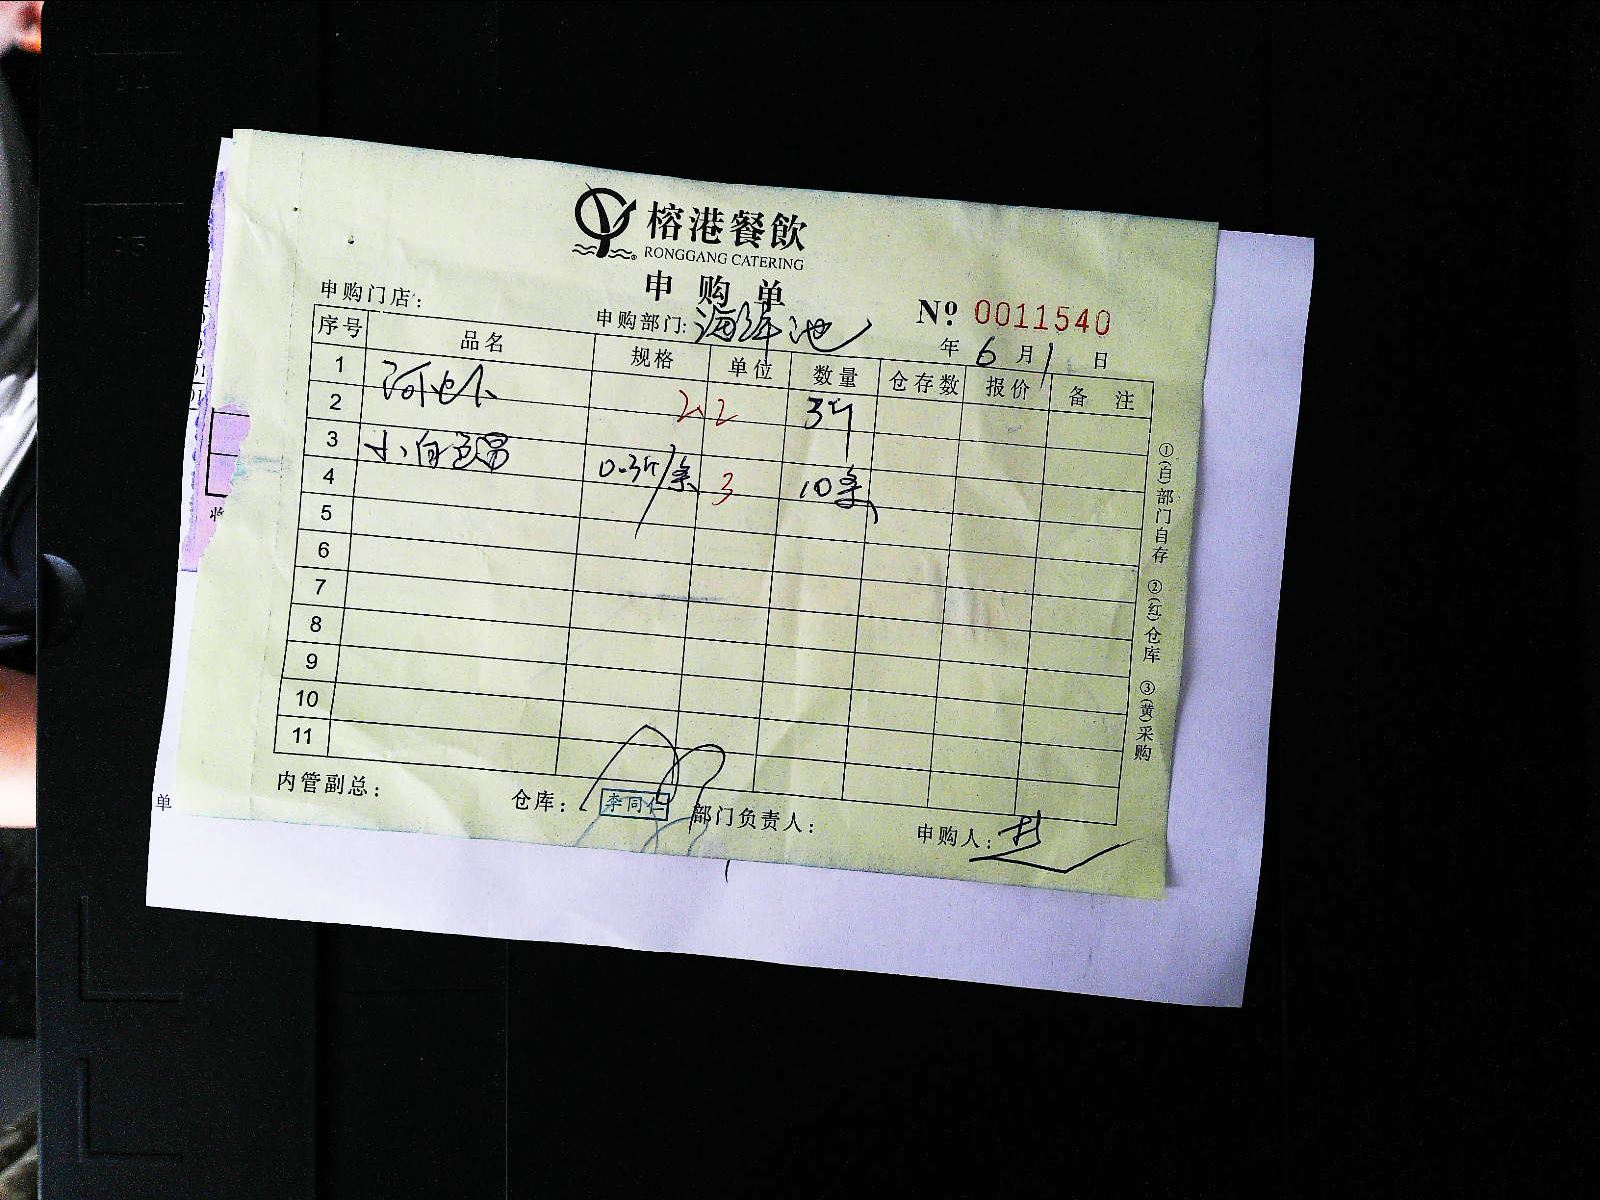 榕港餐飲
RONGGANG CATERING
申购单
申购门店：
申购部门: 海鲜池
Nº 0011540
年 6 月 1 日
序号 品名 规格 单位 数量 仓存数 报价 备注
1
2 2.2 3斤
3 小白鳗
4 0.3斤/条 3 10条
5
6
7
8
9
10
11
内管副总：
仓库： 李同仁
部门负责人：
申购人：
①(白)部门自存 ②(红)仓库 ③(黄)采购
单